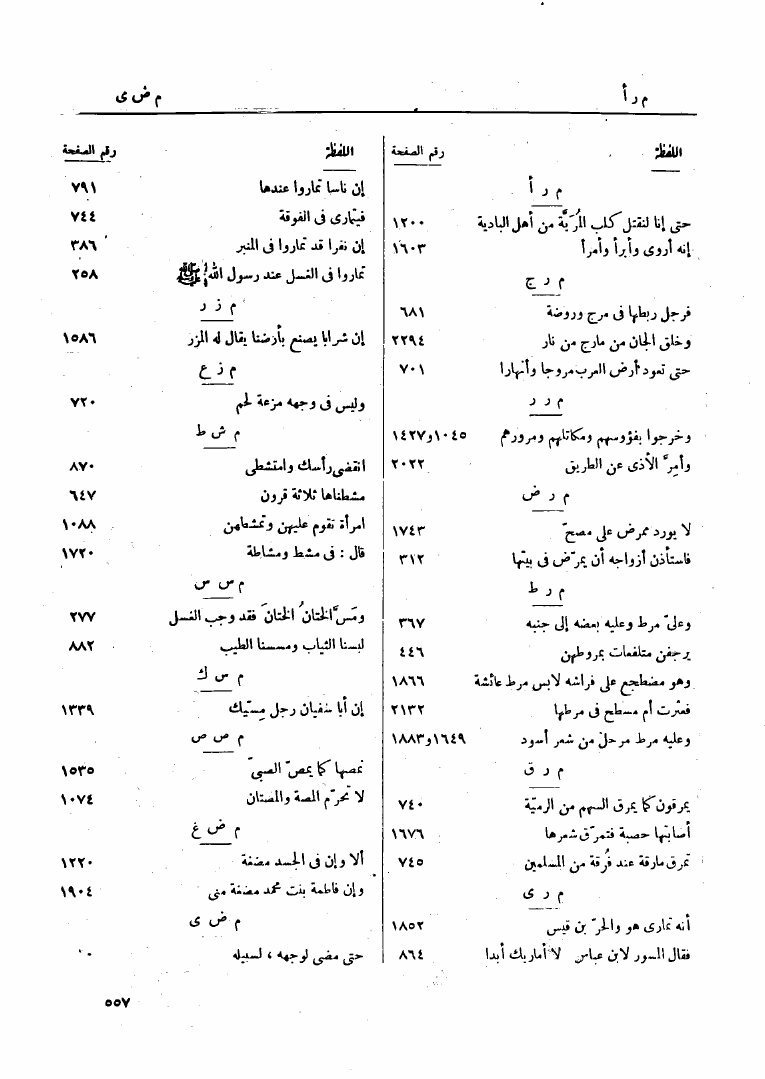 م ر أ
م ض ى
اللفظة رقم الصفحة
م ر أ
حتى إنا لنقتل كلب المُرَيَّة من أهل البادية ١٢٠٠
إنه أروى وأبرأ وأمرأ ١٦٠٣
م ر ج
فرجل ربطها فى مرج وروضة ٦٨١
وخلق الجان من مارج من نار ٢٢٩٤
حتى تعود أرض العرب مروجا وأنهارا ٧٠١
م ر ر
وخرجوا بفؤوسهم ومكاتلهم ومرورهم ١٠٤٥و١٤٢٧
وأمِرَّ الأذى عن الطريق ٢٠٢٢
م ر ض
لا يورد ممرض على مصحّ ١٧٤٣
فاستأذن أزواجه أن يمرّض فى بيتها ٣١٢
م ر ط
وعلىّ مرط وعليه بعضه إلى جنبه ٣٦٧
يرجفن متلفعات بمروطهن ٤٤٦
وهو مضطجع على فراشه لابس مرط عائشة ١٨٦٦
فعثرت أم مسطح فى مرطها ٢١٣٢
وعليه مرط مرحل من شعر أسود ١٦٤٩و١٨٨٣
م ر ق
يمرقون كما يمرق السهم من الرميّة ٧٤٠
أصابتها حصبة فتمرّق شعرها ١٦٧٦
تمرق مارقة عند فُرقة من المسلمين ٧٤٥
م ر ى
أنه تمارى هو والحرّ بن قيس ١٨٥٢
فقال المسور لابن عباس لا أماريك أبدا ٨٦٤
اللفظة رقم الصفحة
إن ناسا تماروا عندها ٧٩١
فيتمارى فى الفوقة ٧٤٤
إن نفرا قد تماروا فى المنبر ٣٨٦
تماروا فى الغسل عند رسول الله ﷺ ٢٥٨
م ز ر
إن شرابا يصنع بأرضنا يقال له المزر ١٥٨٦
م ز ع
وليس فى وجهه مزعة لحم ٧٢٠
م ش ط
انقضى رأسك وامتشطى ٨٧٠
مشطناها ثلاثة قرون ٦٤٧
امرأة تقوم عليهن وتمشطهن ١٠٨٨
قال : فى مشط ومشاطة ١٧٢٠
م س س
ومَسَّ الختانُ الختانَ فقد وجب الغسل ٢٧٧
لبسنا الثياب ومسسنا الطيب ٨٨٢
م س ك
إن أبا سفيان رجل مِسّيك ١٣٣٩
م ص ص
تمصها كما يمصّ الصبىّ ١٥٣٥
لا تحرّم المصة والمصتان ١٠٧٤
م ض غ
ألا وإن فى الجسد مضغة ١٢٢٠
وإن فاطمة بنت محمد مضغة منى ١٩٠٤
م ض ى
حتى مضى لوجهه ، لسبيله
٥٥٧